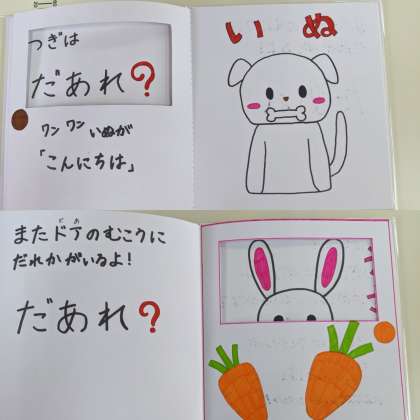 つぎは
だあれ?
ワンワンいぬが
「こんにちは」
いぬ
またドアのむこうに
だれかがいるよ!
だあれ?